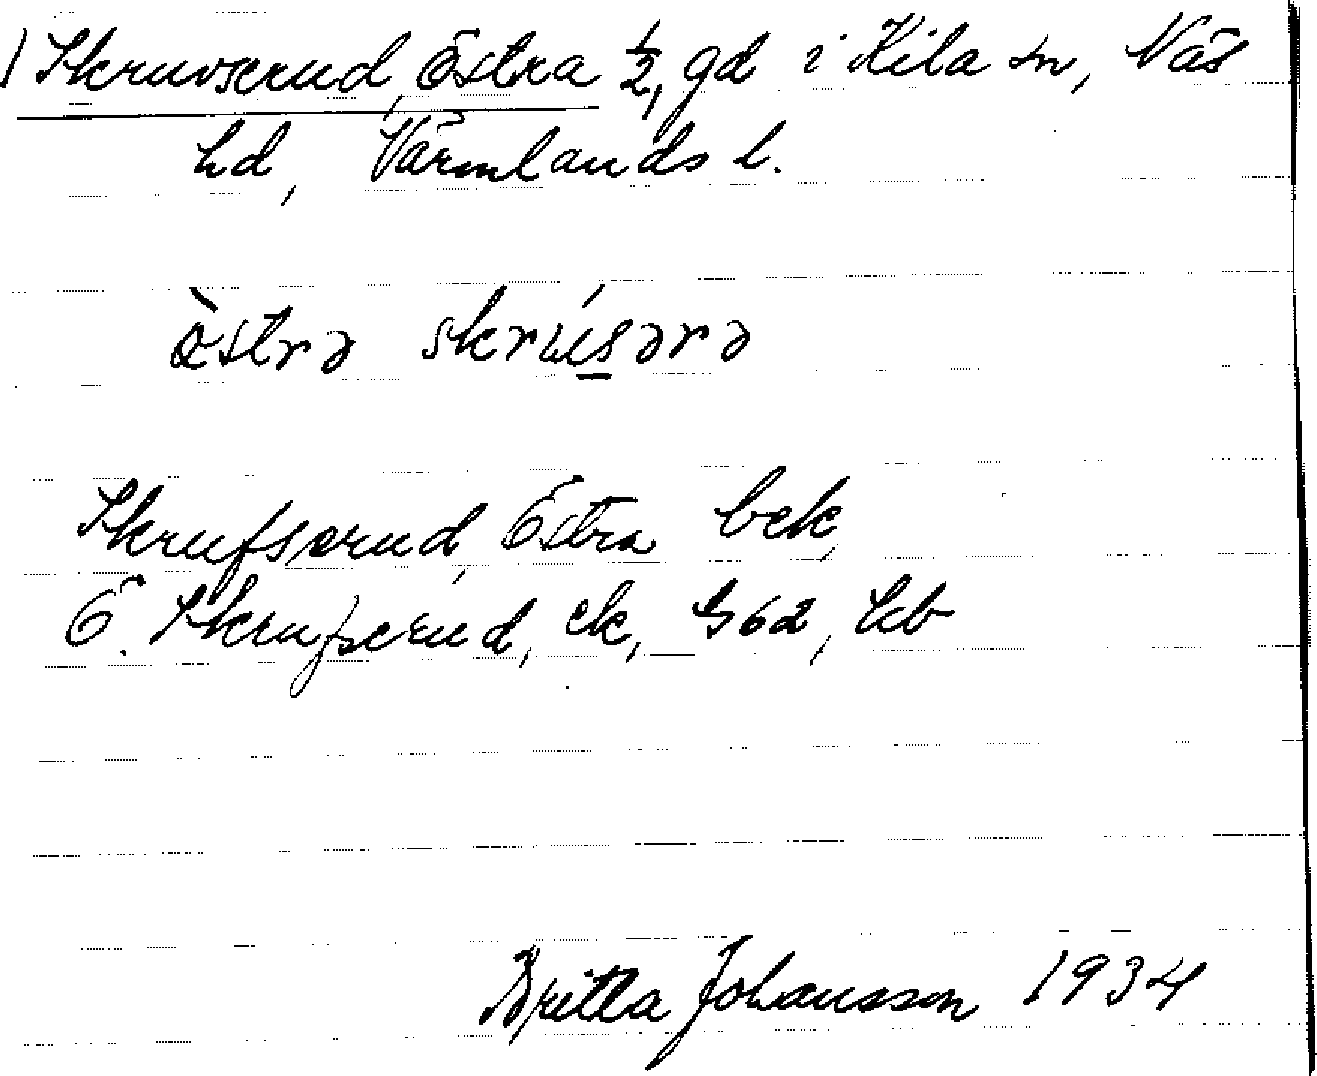 1) Skruvserud, Östra 1/2, gd i Kila sn, Näs
hd, Värmlands l.
östrə skrúsərə
Skrufserud, Östra bek,
Ö. Skrufserud, ek, G 62, Hb
Britta Johansson 1934